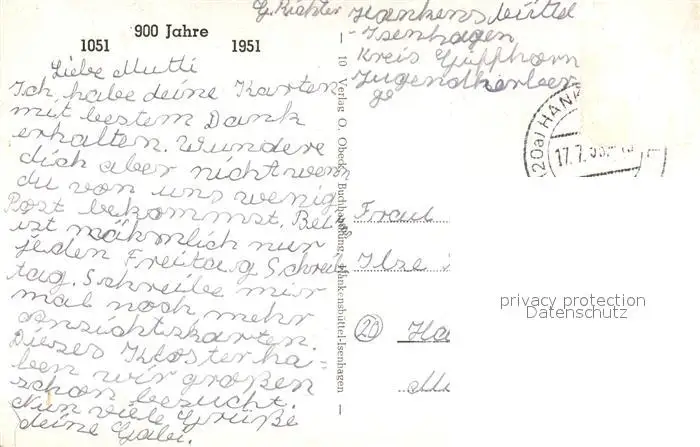 900 Jahre
1051 1951
G. Richter
Hankensbüttel
-Isenhagen
Kreis Giffhorn
Jugendherber
ge
Liebe Mutti
Ich habe deine Karten
mit bestem Dank
erhalten. Wundere
dich aber nicht wenn
du von uns wenig
Post bekommst. Bei uns
ist nähmlich nur
jeden Freitag Schreib
tag. Schreibe mir
mal noch mehr
Ansichtskarten.
Dieses Kloster ha-
ben wir großen
schon besucht.
Nun viele Grüße
deine Gabi.
10 Verlag O. Obeck, Buchhandlung, Hankensbüttel-Isenhagen
(20a) HANK
17.7.
Frau
Ilse
20 Ha
privacy protection
Datenschutz